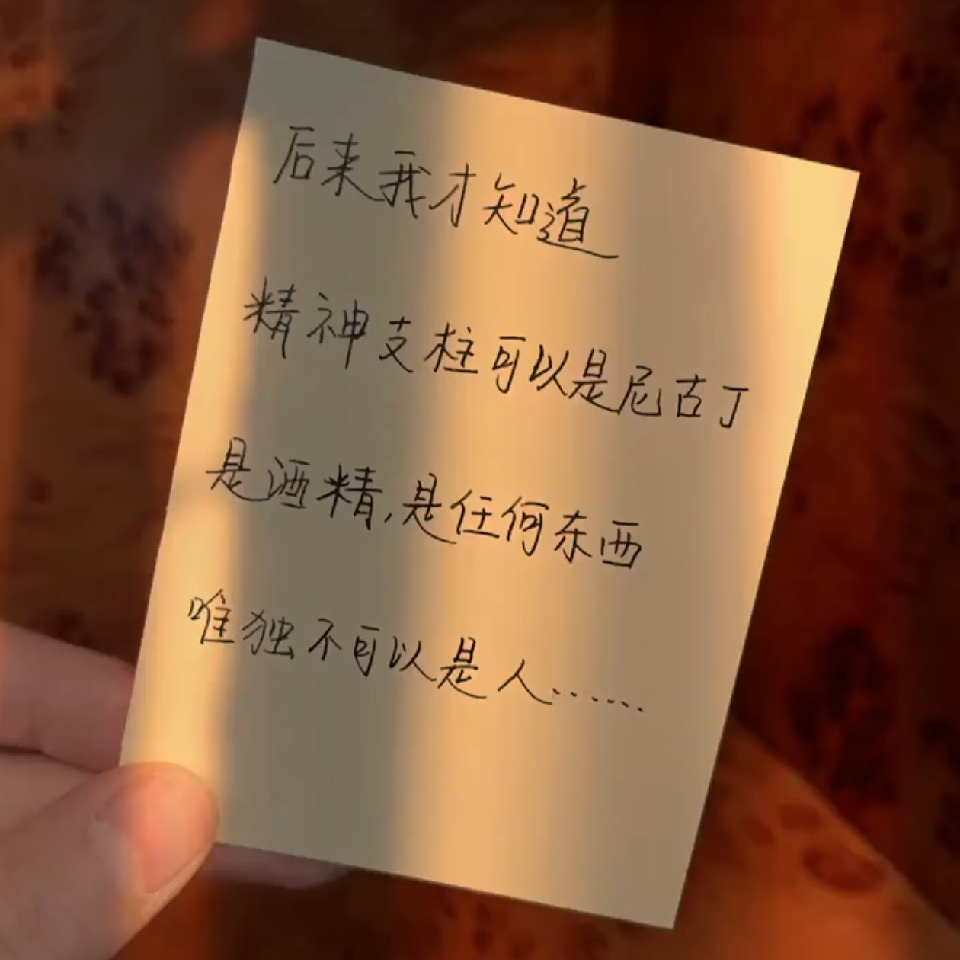 后来我才知道
精神支柱可以是尼古丁
是酒精,是任何东西
唯独不可以是人……